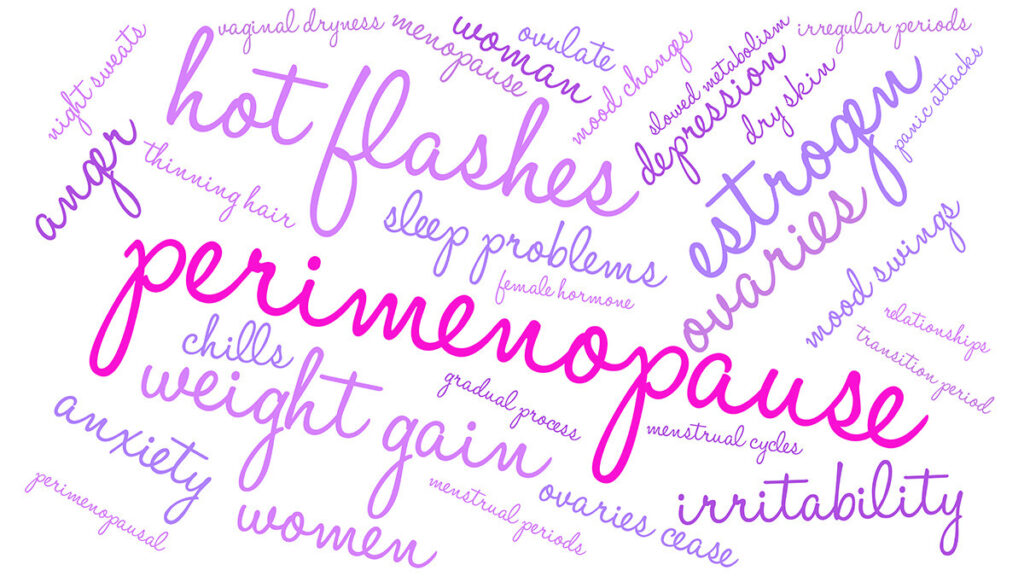 vaginal dryness
menopause
woman
ovulate
mood changes
slowed metabolism
irregular periods
night sweats
hot flashes
depression
dry skin
panic attacks
anger
thinning hair
sleep problems
estrogen
ovaries
mood swings
female hormone
perimenopause
relationships
transition period
chills
weight gain
gradual process
menstrual cycles
anxiety
perimenopausal
women
menstrual periods
ovaries cease
irritability